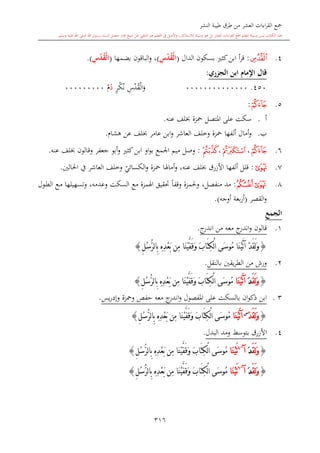 جمع القراءات العشر من طرق طيبة النشر
٤. ﴿ٱلْقُدُسِ﴾: قرأ ابن كثير بسكون الدال (ٱلْقُدْسِ)، والباقون بضمها (ٱلْقُدُسِ).
قال الإمام ابن الجزري:
٤٥٠. .............. وَالْقُدْسِ نُكْرِ دُمْ .........
٥. ﴿جَآءَكُمْ﴾:
أ. سكت على المتصل حمزة بخلف عنه.
ب. وأمال ألفها حمزة وخلف العاشر وابن عامر بخلف عن هشام.
٦. ﴿جَآءَكُمْ، ٱسْتَكْبَرْتُمْ، كَذَّبْتُمْ﴾: وصل ميم الجمع بواو ابن كثير وأبو جعفر وقالون بخلف عنه.
٧. ﴿تَهْوَىٰٓ﴾: قلل ألفها الأزرق بخلف عنه، وأمالها حمزة والكسائيّ وخلف العاشر في الحالين.
٨. ﴿تَهْوَىٰٓ أَنفُسُكُمُ﴾: مد منفصل، ولحمزة وقفاً تحقيق الهمزة مع السكت وعدمه، وتسهيلها مع الطول
والقصر (أربعة أوجه).
الجمع
١. قالون واندرج معه من اندرج.
﴿وَلَقَدْ ءَاتَيْنَا مُوسَى ٱلْكِتَٰبَ وَقَفَّيْنَا مِنۢ بَعْدِهِۦ بِٱلرُّسُلِ﴾
٢. ورش من الطريقين بالنقل.
﴿وَلَقَدَ اتَيْنَا مُوسَى ٱلْكِتَٰبَ وَقَفَّيْنَا مِنۢ بَعْدِهِۦ بِٱلرُّسُلِ﴾
٣. ابن ذكوان بالسكت على المفصول واندرج معه حفص وحمزة وإدريس.
﴿وَلَقَدْ ءَاتَيْنَا مُوسَى ٱلْكِتَٰبَ وَقَفَّيْنَا مِنۢ بَعْدِهِۦ بِٱلرُّسُلِ﴾
٤. الأزرق بتوسط ومد البدل.
﴿وَلَقَدَ اتَيْنَا مُوسَى ٱلْكِتَٰبَ وَقَفَّيْنَا مِنۢ بَعْدِهِۦ بِٱلرُّسُلِ﴾
﴿وَلَقَدَ اتَيْنَا مُوسَى ٱلْكِتَٰبَ وَقَفَّيْنَا مِنۢ بَعْدِهِۦ بِٱلرُّسُلِ﴾
٣١٦